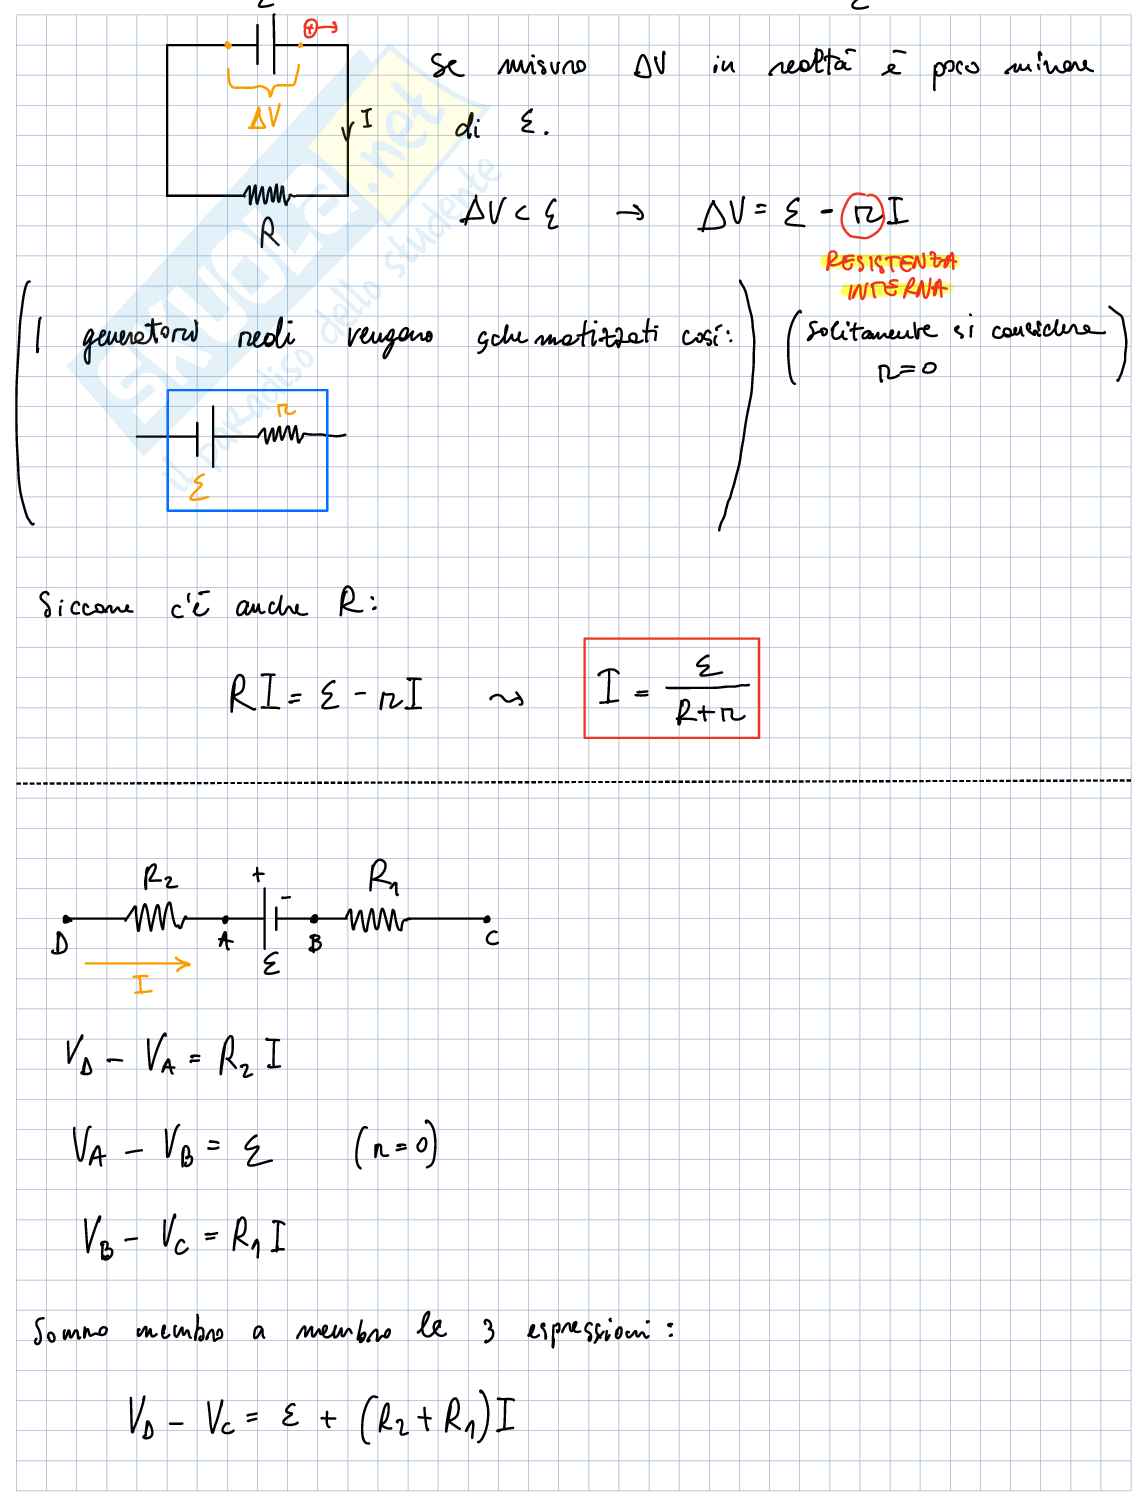 ε ε
⊕→
ΔV
I
R
Se misuro ΔV in realtà è poco minore
di ε.
ΔV < ε → ΔV = ε - rI
RESISTENZA
INTERNA
(I generatori reali vengono schematizzati così:)
(Solitamente si considera
r=0)
r
ε
Siccome c'è anche R:
RI = ε - rI ⇝ I = ε/(R+r)
R₂ + - R₁
D A B C
ε
I
V_D - V_A = R₂ I
V_A - V_B = ε (r=0)
V_B - V_C = R₁ I
Sommo membro a membro le 3 espressioni:
V_D - V_C = ε + (R₂ + R₁) I
SKUOLA.net
il paradiso dello studente